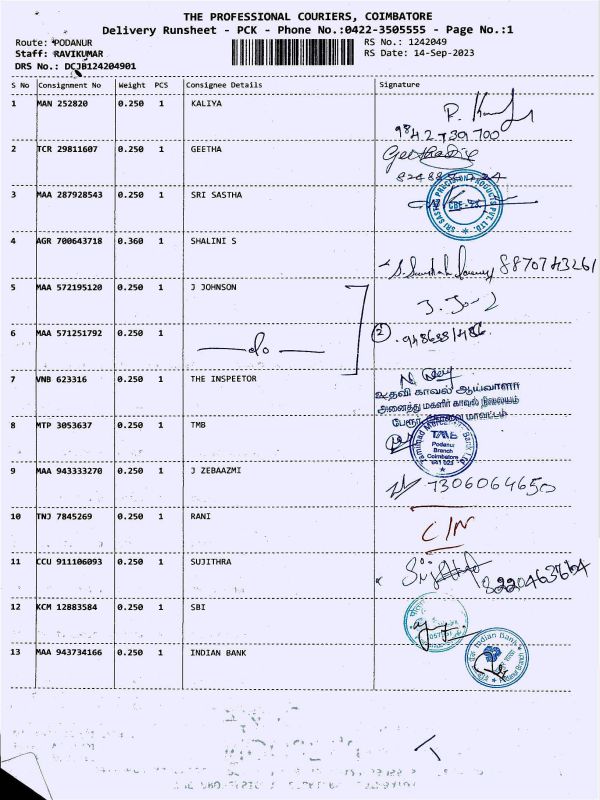 THE PROFESSIONAL COURIERS, COIMBATORE
Delivery Runsheet - PCK - Phone No.:0422-3505555 - Page No.:1
Route: PODANUR
RS No.: 1242049
Staff: RAVIKUMAR
RS Date: 14-Sep-2023
DRS No.: DCJB124204901
S No Consignment No Weight PCS Consignee Details Signature
1 MAN 252820 0.250 1 KALIYA
9842739700
2 TCR 29811607 0.250 1 GEETHA
3 MAA 287928543 0.250 1 SRI SASTHA
SRI SASTHA PRECISION PRODUCTS PVT. LTD.
CBE - 23.
4 AGR 700643718 0.360 1 SHALINI S
8870743261
5 MAA 572195120 0.250 1 J JOHNSON
6 MAA 571251792 0.250 1
do
2
7 VNB 623316 0.250 1 THE INSPEETOR
உதவி காவல் ஆய்வாளர்
அனைத்து மகளிர் காவல் நிலையம்
பேரூர், கோவை மாவட்டம்
8 MTP 3053637 0.250 1 TMB
Tamilnad Mercantile Bank Ltd
TMB
Podanur
Branch
Coimbatore
641 023
9 MAA 943333270 0.250 1 J ZEBAAZMI
7306064650
10 TNJ 7845269 0.250 1 RANI
C/N
11 CCU 911106093 0.250 1 SUJITHRA
8220463664
12 KCM 12883584 0.250 1 SBI
13 MAA 943734166 0.250 1 INDIAN BANK
Indian Bank